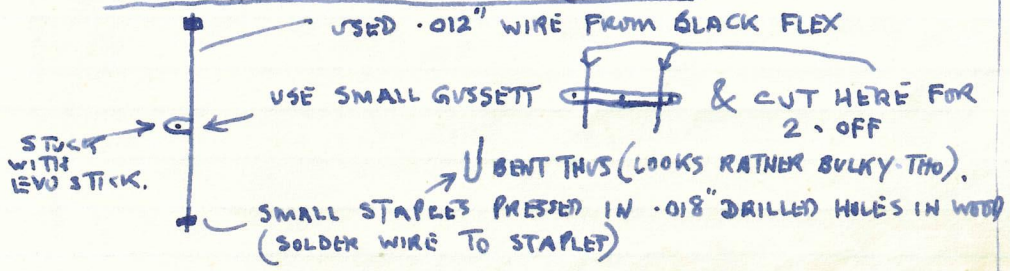 USED .012" WIRE FROM BLACK FLEX
USE SMALL GUSSETT & CUT HERE FOR
2. OFF
STUCK
WITH
EVO STICK.
BENT THUS (LOOKS RATHER BULKY THO).
SMALL STAPLES PRESSED IN .018" DRILLED HOLES IN WOOD
(SOLDER WIRE TO STAPLES)